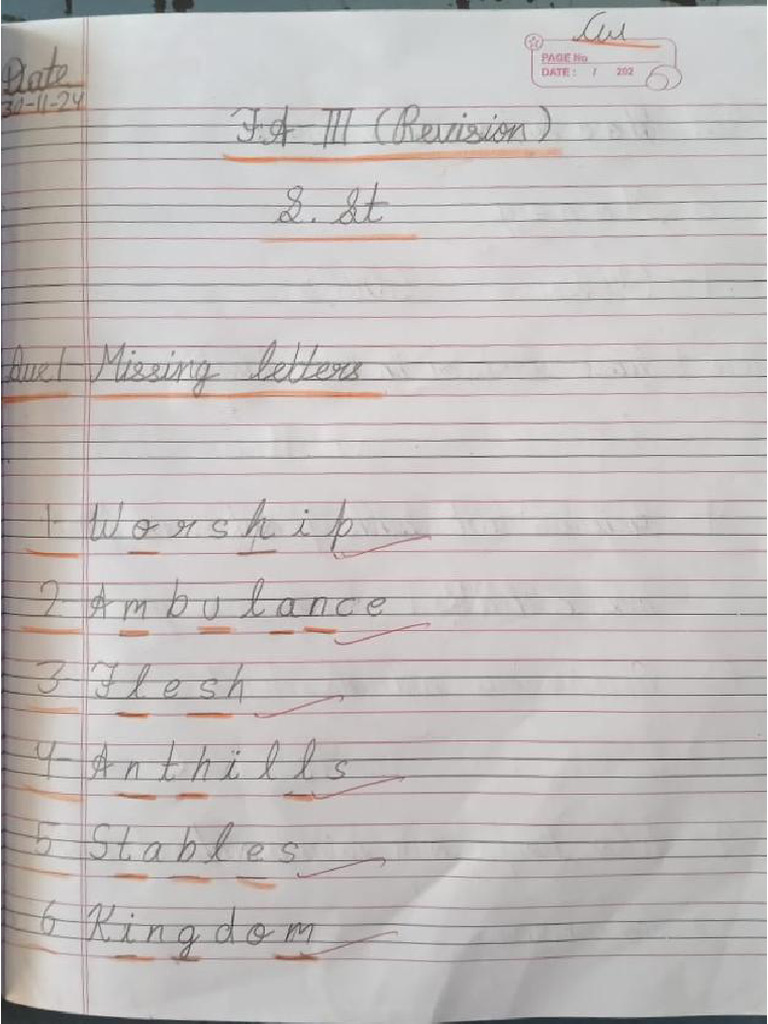 PAGE No
DATE: / 202
Date
30-11-24
FA III (Revision)
S. St
Que1 Missing letters
1 Worship
2 Ambulance
3 Flesh
4 Anthills
5 Stables
6 Kingdom